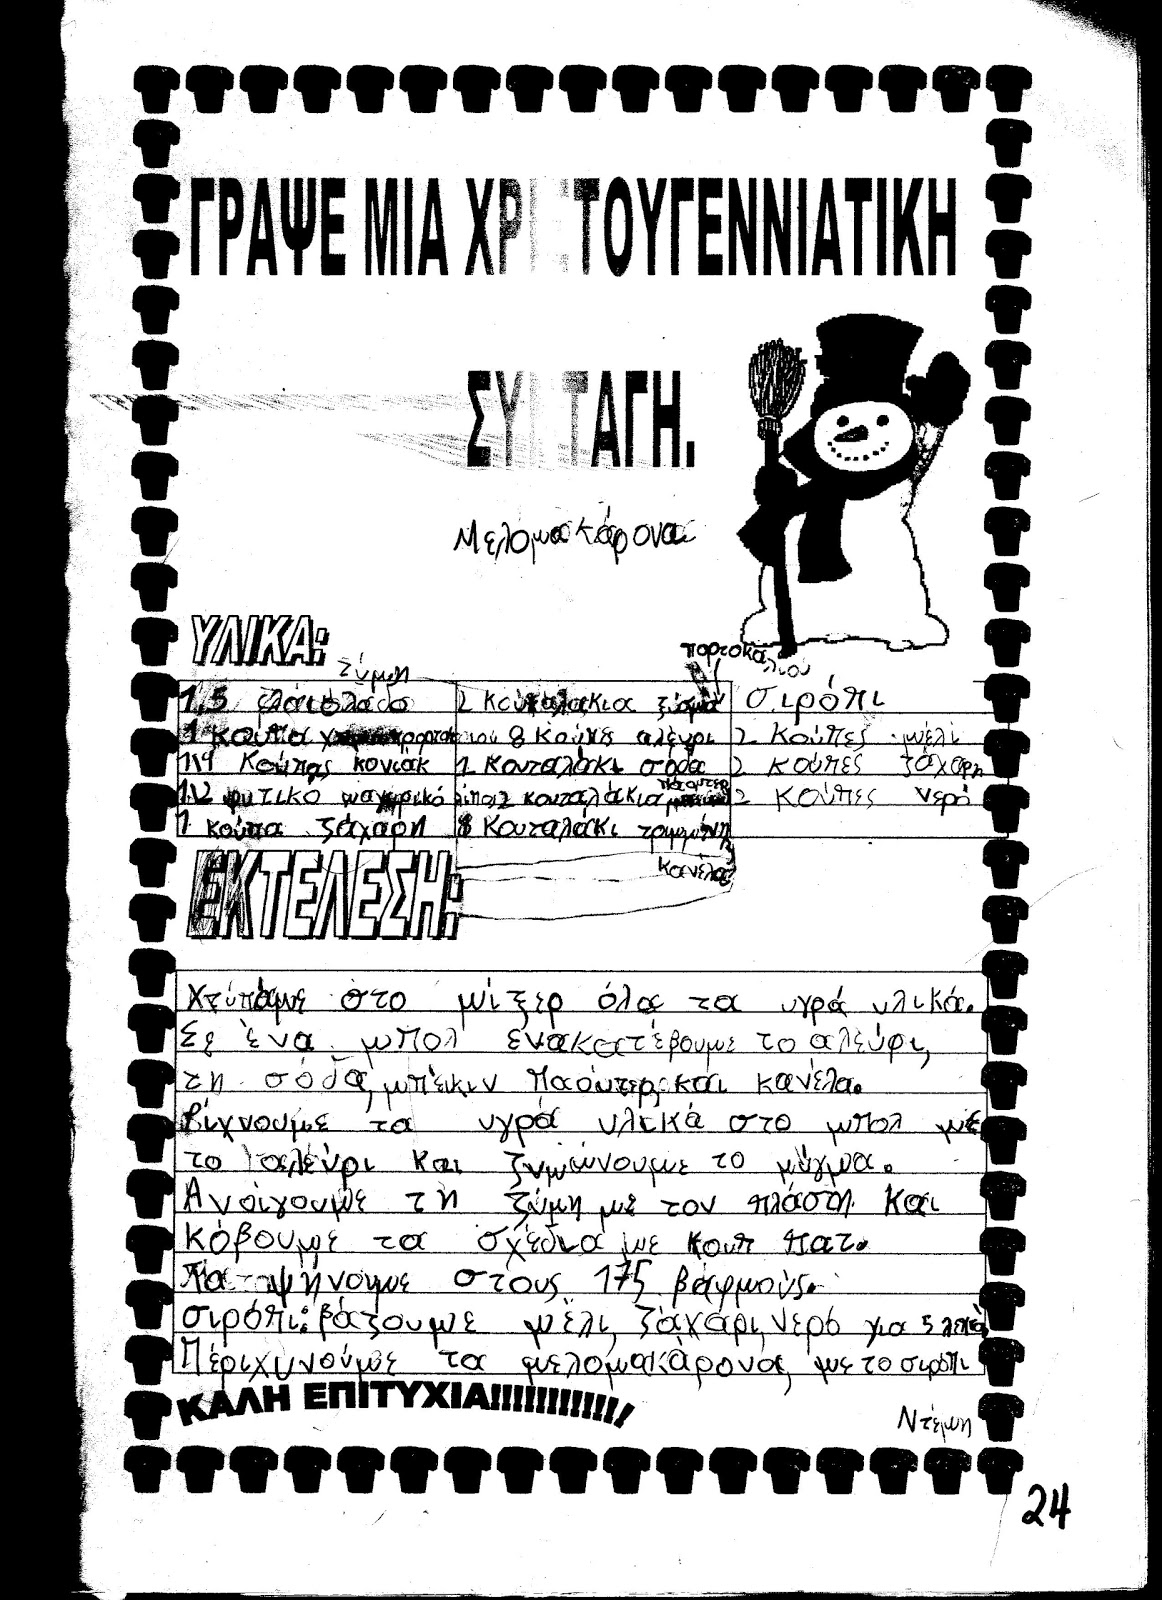 ΓΡΑΨΕ ΜΙΑ ΧΡΙΣΤΟΥΓΕΝΝΙΑΤΙΚΗ
ΣΥΝΤΑΓΗ.
Μελομακάρονα
ΥΛΙΚΑ:
Ζύμη
πορτοκαλιού
1,5 ελαιόλαδο 2 Κουταλάκια ξύσμα σιρόπι
1 κούπα 8 Κούπες αλεύρι 2 Κούπες μέλι
1\4 Κούπας κονιάκ 1 Κουταλάκι σόδα 2 κούπες ζάχαρη
πάουντερ
1\2 φυτικό μαγειρικό λίπος 2 κουταλάκια 2 Κούπες νερό
1 κούπα ζάχαρη 8 Κουταλάκι τριμμένη
κανέλας
ΕΚΤΕΛΕΣΗ:
Χτύπάμε στο μίξερ όλα τα υγρά υλικά.
Σε ένα μπολ ενακατέβουμε το αλεύρι,
τη σόδα, μπέικιν Πάουτερ, και κανέλα.
Ρίχνουμε τα υγρά υλικά στο μπολ με
το αλεύρι και ζυμώνουμε το μύγμα.
Ανοίγουμε τη ζύμη με τον πλάστη και
κόβουμε τα σχέδια με κουπ πατ.
Τα ψήνουμε στους 175 βαθμούς.
σιρόπι: βάζουμε μέλι, ζάχαρι, νερό για 5 λεπτά
Περιχυνούμε τα μελομακάρονα, με το σιρόπι
ΚΑΛΗ ΕΠΙΤΥΧΙΑ!!!!!!!!!!!!
Ντέμη
24